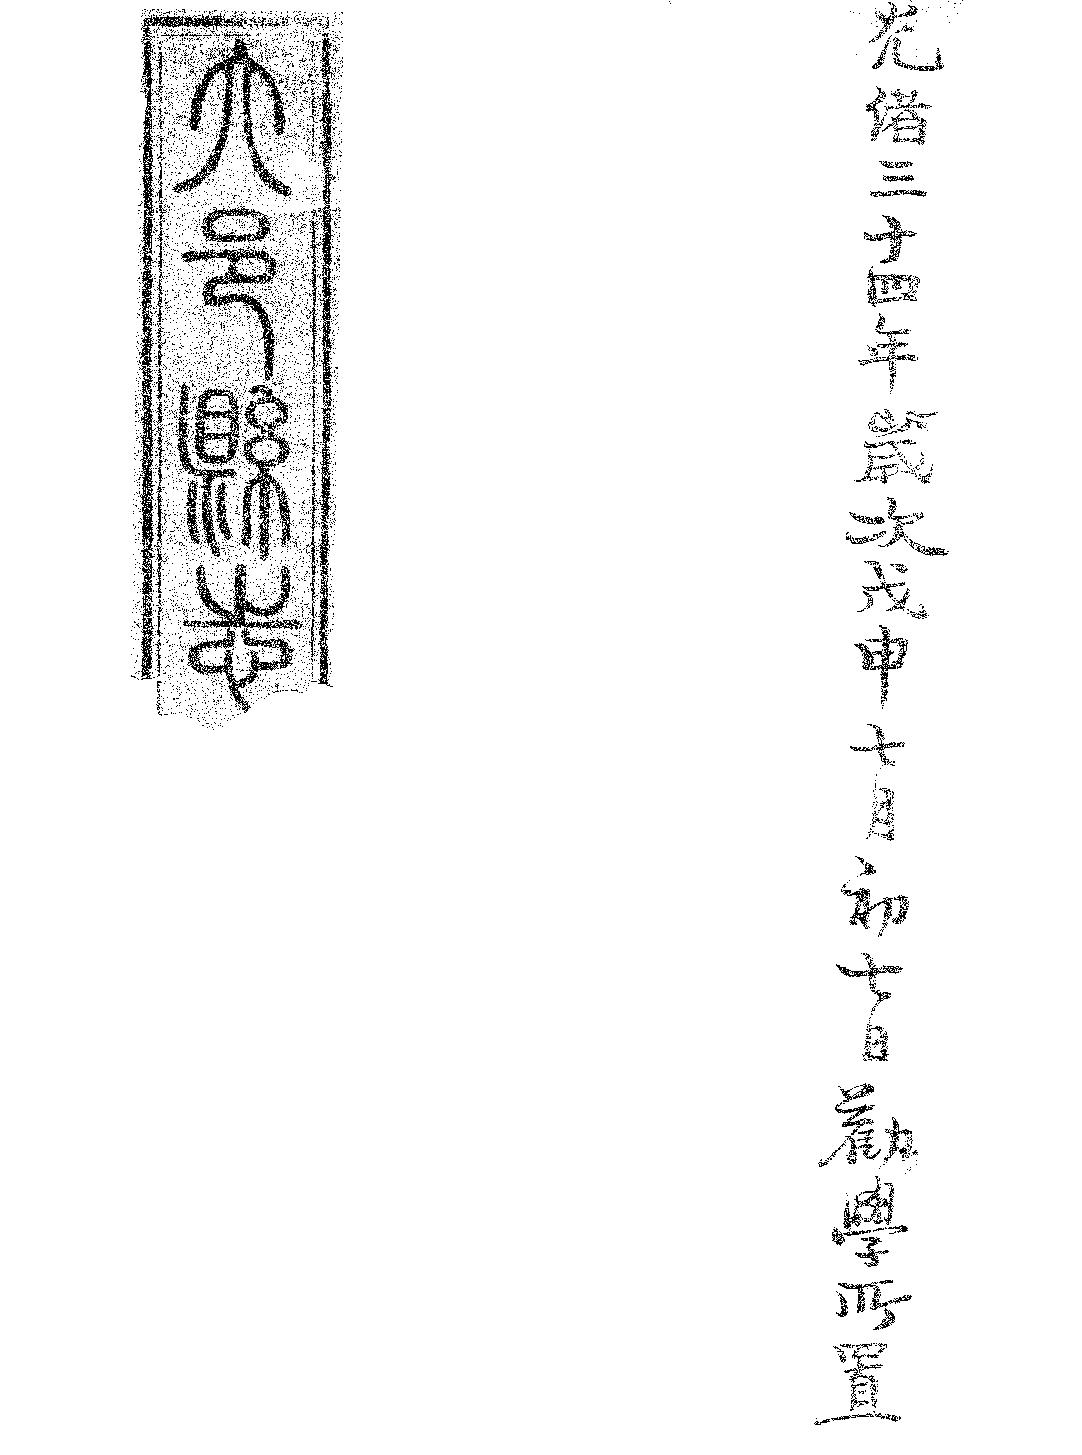 光緒三十四年歲次戊申七月初七日勸學所置
大邑縣志